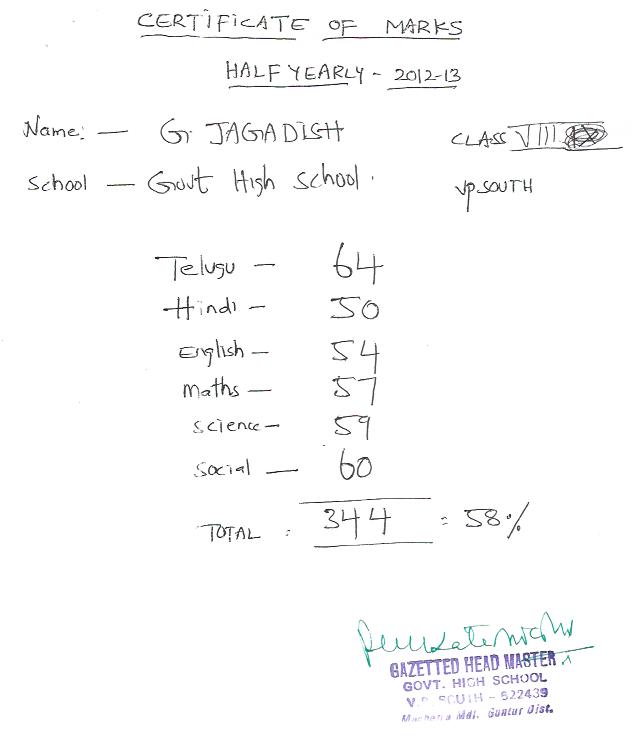 CERTIFICATE OF MARKS
HALF YEARLY - 2012-13
Name: — G. JAGADISH CLASS VIII
School — Govt High school. VP. SOUTH
Telugu — 64
Hindi — 50
English — 54
Maths — 57
Science — 59
Social — 60
TOTAL : 344 = 58%
GAZETTED HEAD MASTER
GOVT. HIGH SCHOOL
V.P. SOUTH - 522439
Macherla Mdl. Guntur Dist.